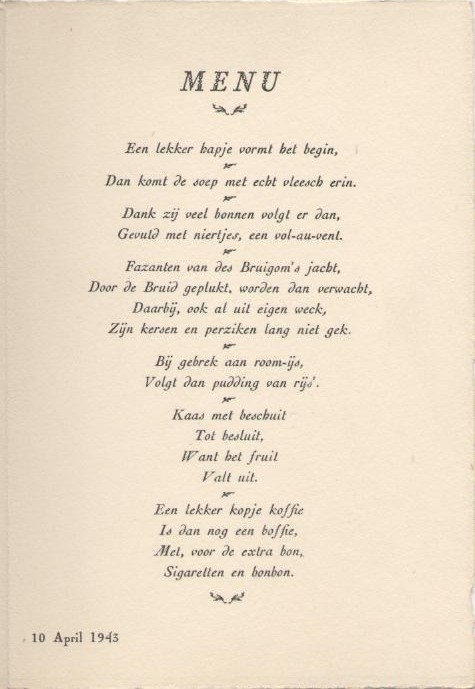 MENU
Een lekker hapje vormt het begin,
Dan komt de soep met echt vleesch erin.
Dank zij veel bonnen volgt er dan,
Gevuld met niertjes, een vol-au-vent.
Fazanten van des Bruigom's jacht,
Door de Bruid geplukt, worden dan verwacht,
Daarbij, ook al uit eigen weck,
Zijn kersen en perziken lang niet gek.
Bij gebrek aan room-ijs,
Volgt dan pudding van rijs'.
Kaas met beschuit
Tot besluit,
Want het fruit
Valt uit.
Een lekker kopje koffie
Is dan nog een boffie,
Met, voor de extra bon,
Sigaretten en bonbon.
10 April 1943